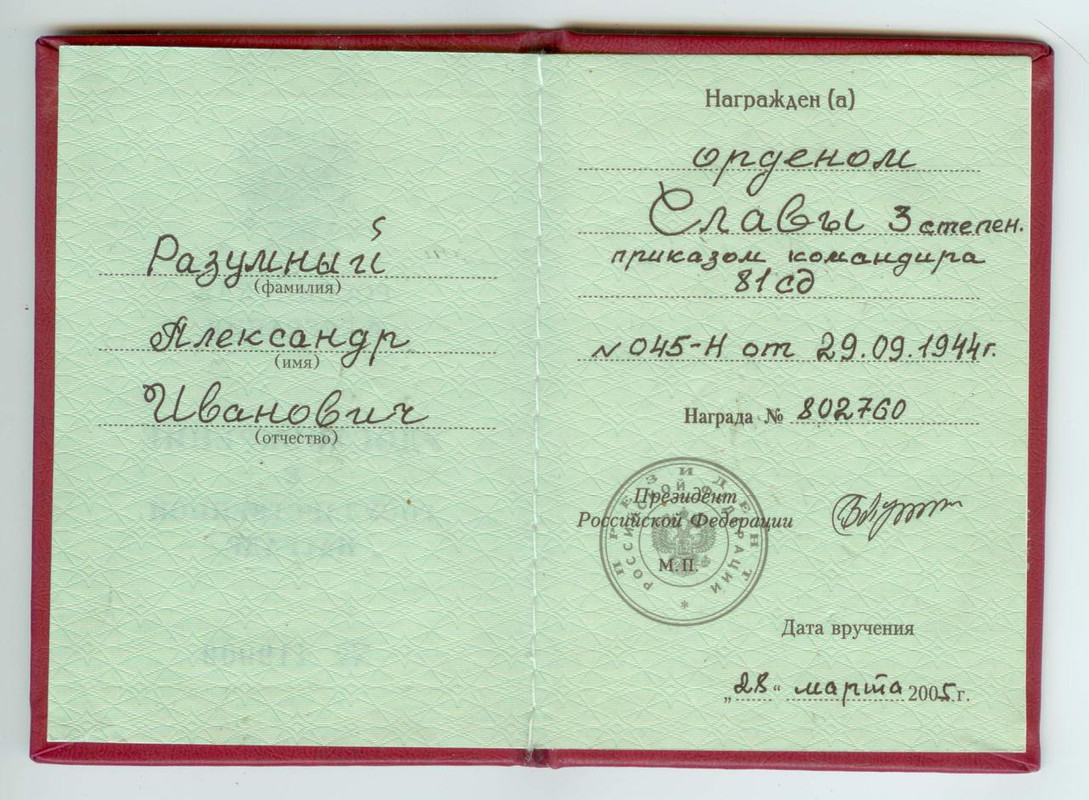 Разумный
(фамилия)
Александр
(имя)
Иванович
(отчество)
Награжден (а)
орденом
Славы 3 степен.
приказом командира
81 сд
№ 045-Н от 29.09.1944г.
Награда № 802760
ПРЕЗИДЕНТ
РОССИЙСКОЙ ФЕДЕРАЦИИ
Президент
Российской Федерации
М.П.
Дата вручения
„28“ марта 2005г.